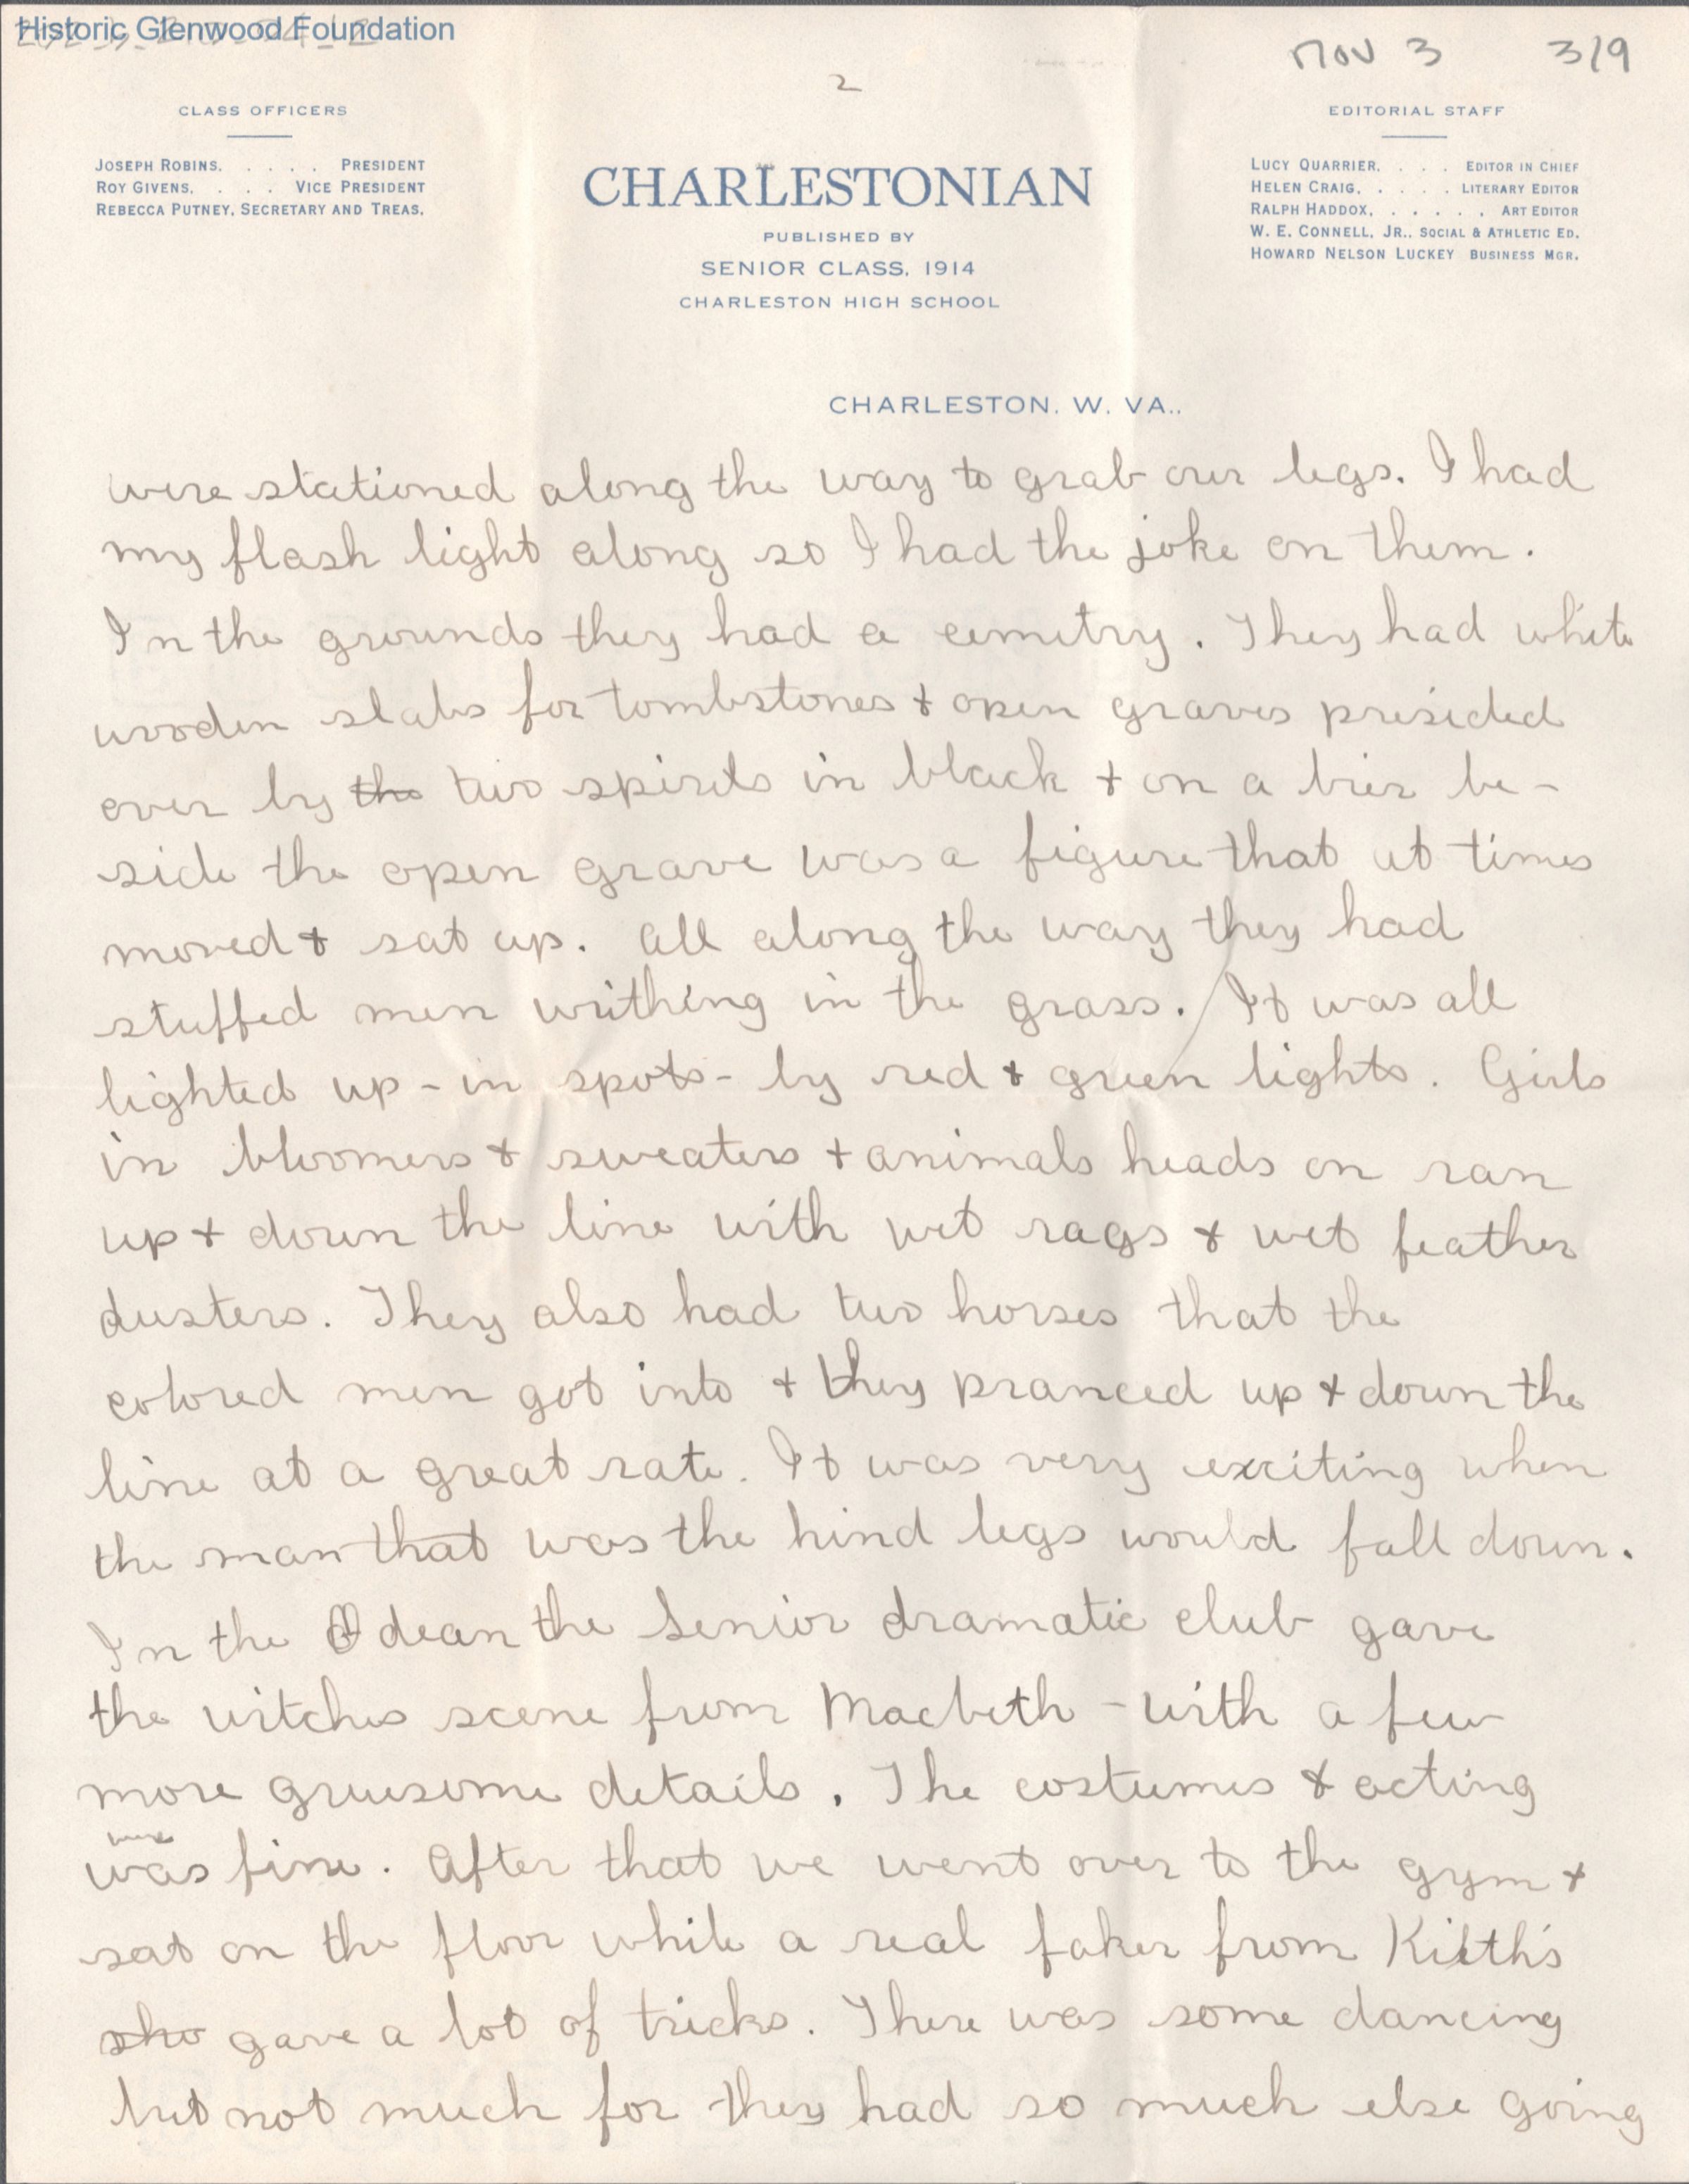 Historic Glenwood Foundation
Nov 3 3/9
2
CLASS OFFICERS
JOSEPH ROBINS. . . . . PRESIDENT
ROY GIVENS. . . . VICE PRESIDENT
REBECCA PUTNEY, SECRETARY AND TREAS.
CHARLESTONIAN
PUBLISHED BY
SENIOR CLASS, 1914
CHARLESTON HIGH SCHOOL
EDITORIAL STAFF
LUCY QUARRIER. . . . EDITOR IN CHIEF
HELEN CRAIG. . . . . LITERARY EDITOR
RALPH HADDOX. . . . . . ART EDITOR
W. E. CONNELL, JR., SOCIAL & ATHLETIC ED.
HOWARD NELSON LUCKEY BUSINESS MGR.
CHARLESTON, W. VA.,
were stationed along the way to grab our legs. I had
my flash light along so I had the joke on them.
In the grounds they had a cemitry. They had white
wooden slabs for tombstones & open graves presided
over by the two spirits in black & on a bier be-
side the open grave was a figure that at times
moved & sat up. All along the way they had
stuffed men writhing in the grass. It was all
lighted up - in spots - by red & green lights. Girls
in bloomers & sweaters & animals heads on ran
up & down the line with wet rags & wet feather
dusters. They also had two horses that the
colored men got into & they pranced up & down the
line at a great rate. It was very exciting when
the man that was the hind legs would fall down.
In the Odean the Senior dramatic club gave
the witches scene from Macbeth - with a few
more gruesome details. The costumes & acting
were
was fine. After that we went over to the gym &
sat on the floor while a real faker from Kieth's
sho gave a lot of tricks. There was some dancing
but not much for they had so much else going